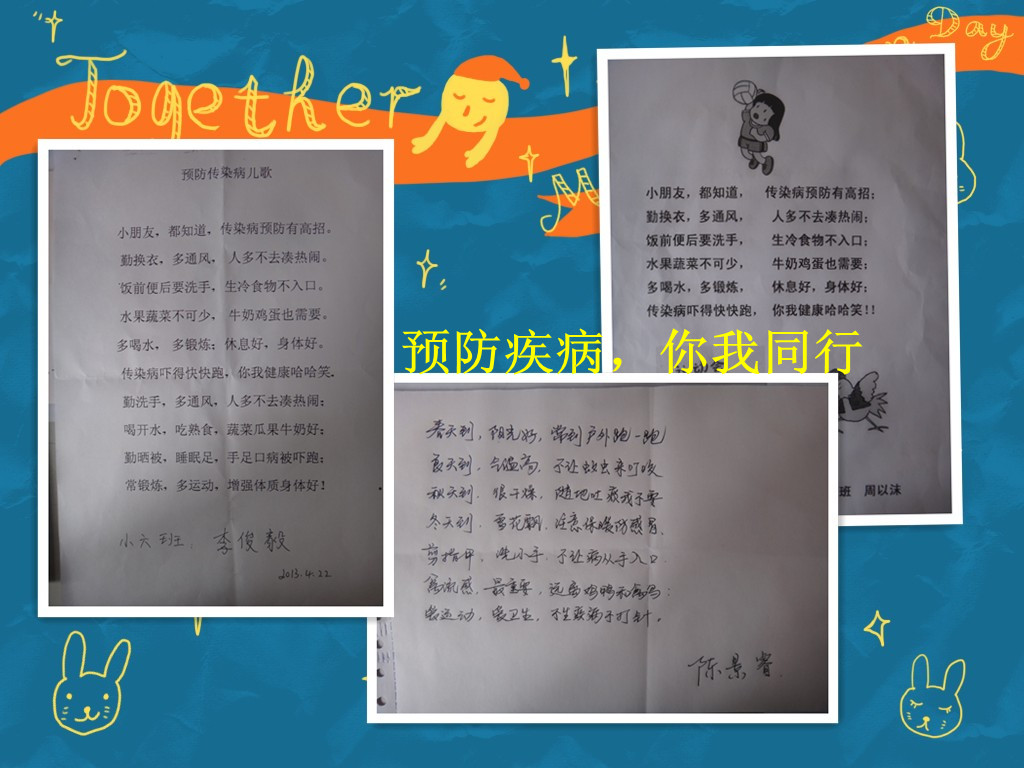 Together
Day
预防传染病儿歌
小朋友，都知道，传染病预防有高招。
勤换衣，多通风，人多不去凑热闹。
饭前便后要洗手，生冷食物不入口。
水果蔬菜不可少，牛奶鸡蛋也需要。
多喝水，多锻炼；休息好，身体好。
传染病吓得快快跑，你我健康哈哈笑。
勤洗手，多通风，人多不去凑热闹；
喝开水，吃熟食，蔬菜瓜果牛奶好；
勤晒被，睡眠足，手足口病被吓跑；
常锻炼，多运动，增强体质身体好！
小六班：李俊毅
2013.4.22
小朋友，都知道，传染病预防有高招；
勤换衣，多通风，人多不去凑热闹；
饭前便后要洗手，生冷食物不入口；
水果蔬菜不可少，牛奶鸡蛋也需要；
多喝水，多锻炼，休息好，身体好；
传染病吓得快快跑，你我健康哈哈笑!!
班 周以沫
预防疾病，你我同行
春天到，阳光好，常到户外跑一跑
夏天到，气温高，不让蚊虫来叮咬
秋天到，很干燥，随地吐痰我不要
冬天到，雪花飘，注意保暖防感冒，
剪指甲，洗小手，不让病从手入口
禽流感，最重要，远离
爱运动，爱卫生，不生疾病不打针。
陈景睿